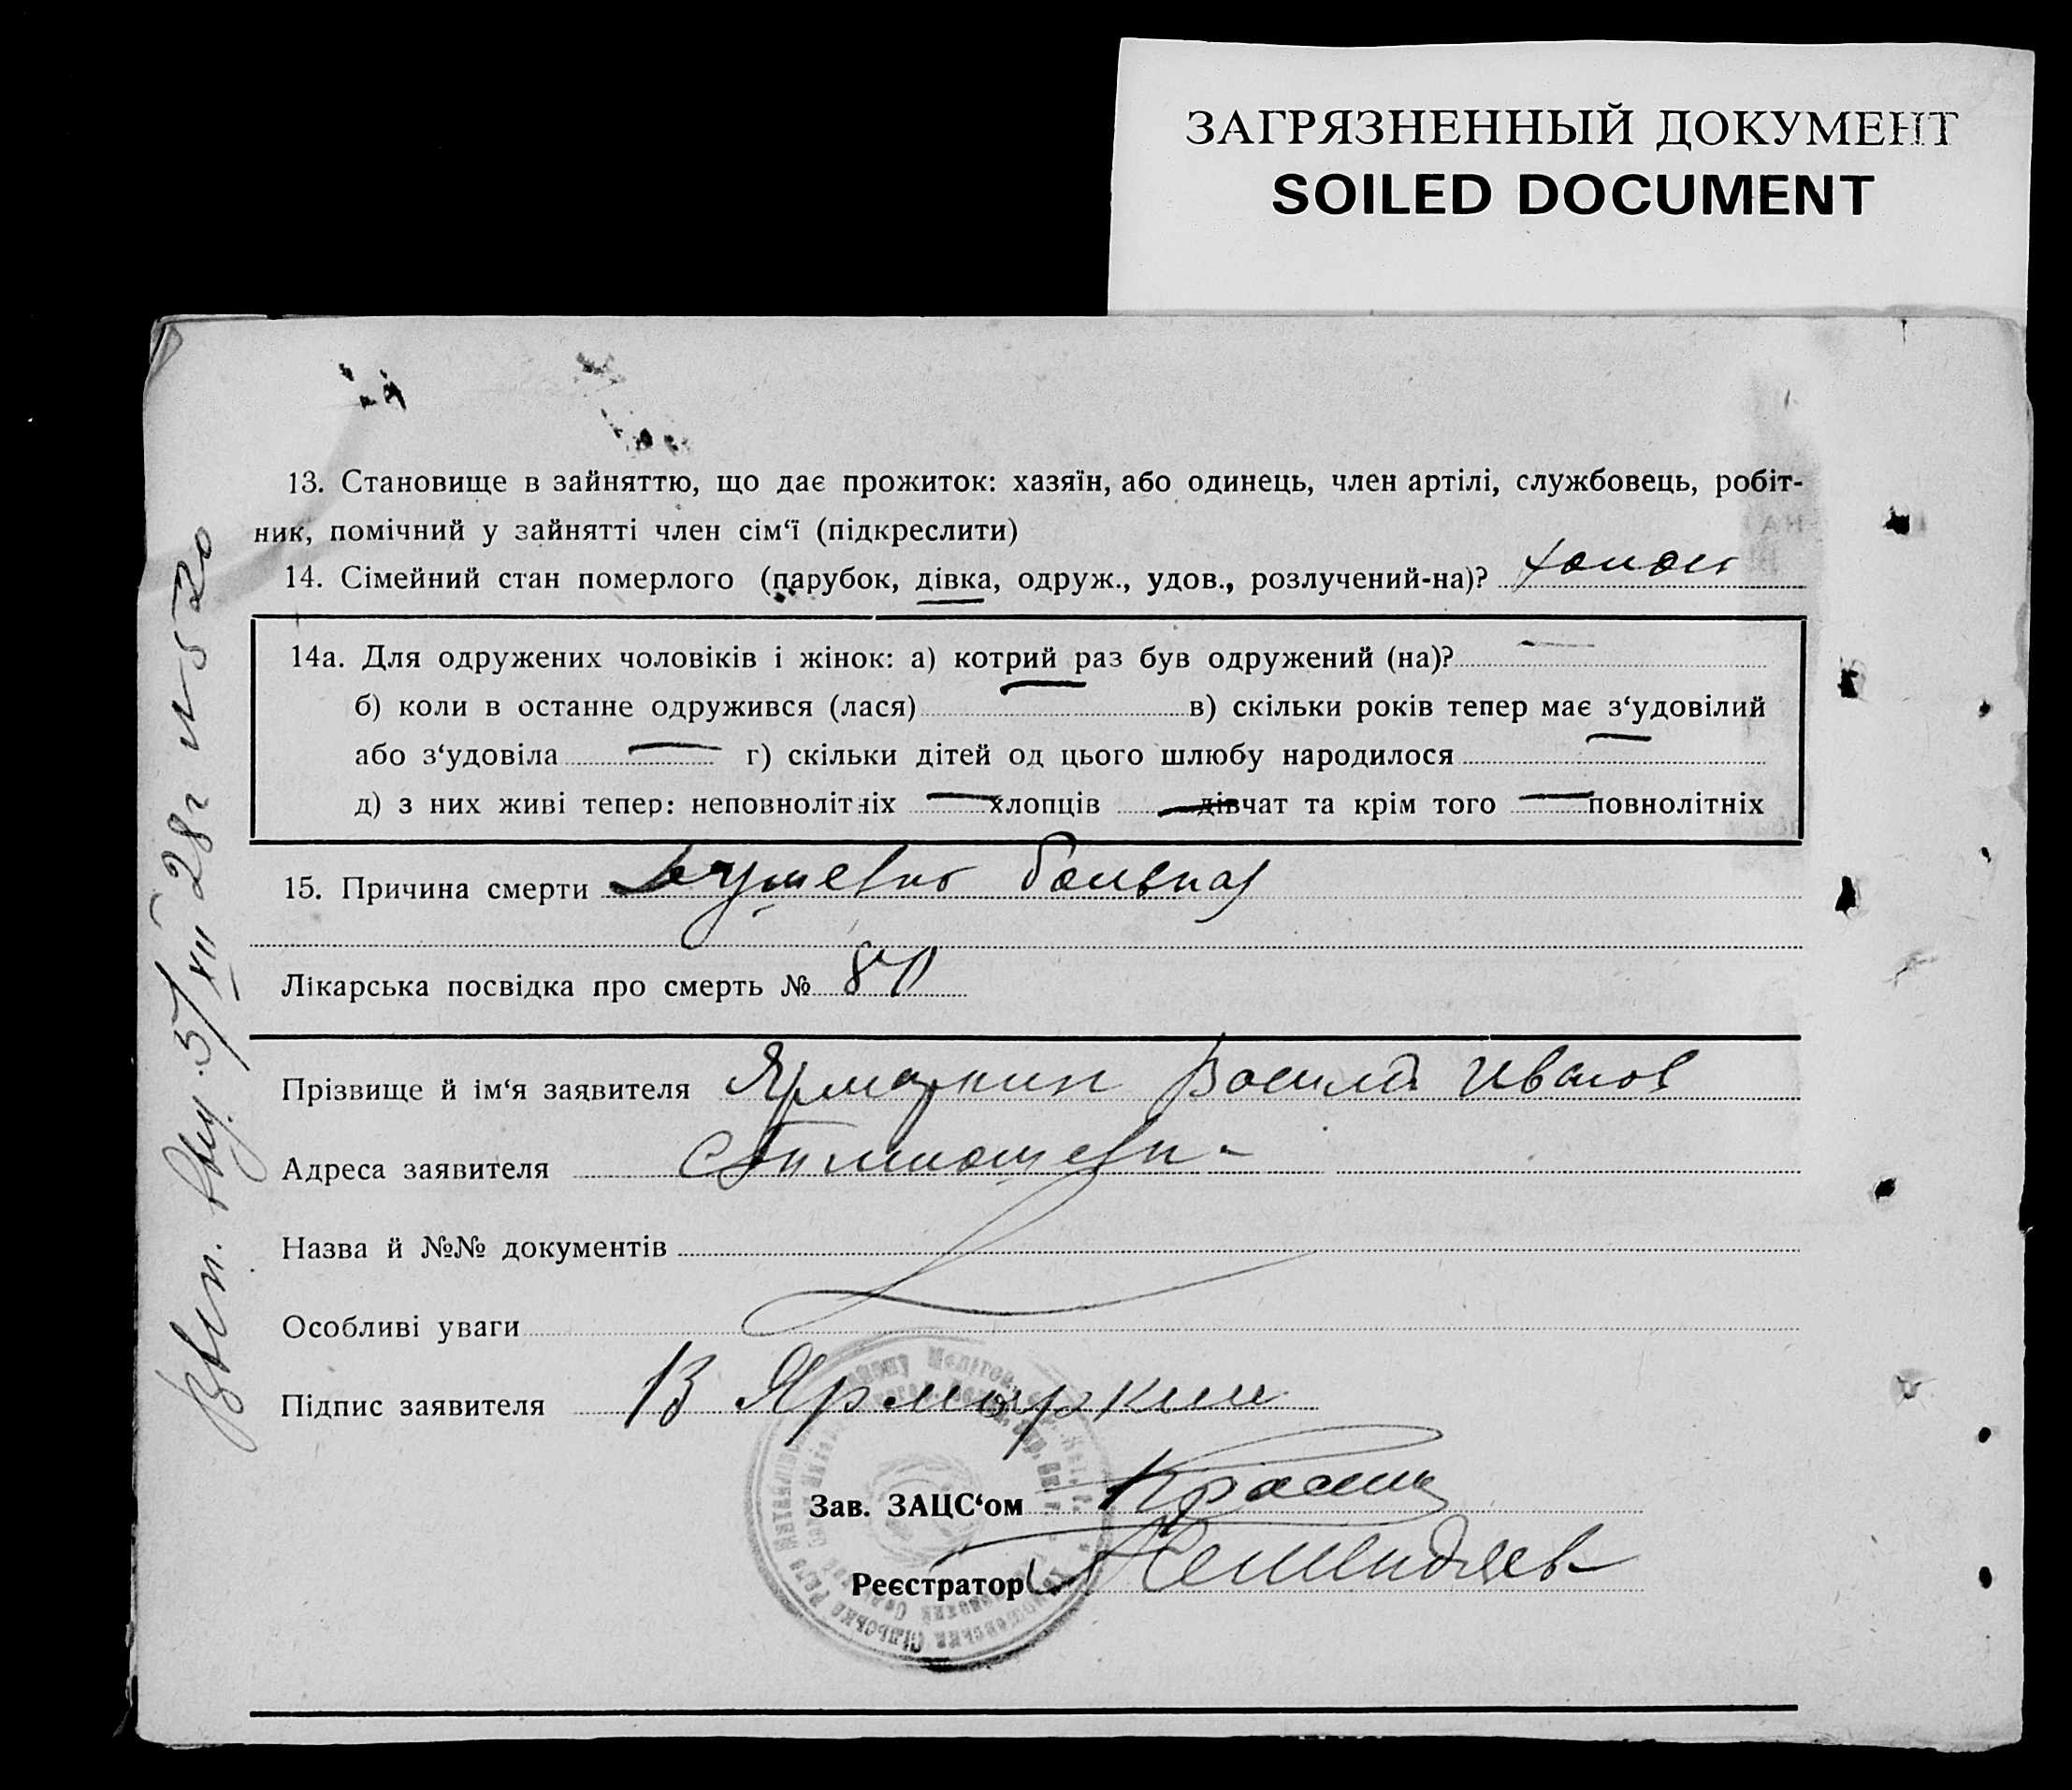 ЗАГРЯЗНЕННЫЙ ДОКУМЕНТ
SOILED DOCUMENT
13. Становище в зайняттю, що дає прожиток: хазяїн, або одинець, член артілі, службовець, робіт-
ник, помічний у зайнятті член сім‘ї (підкреслити)
14. Сімейний стан померлого (парубок, дівка, одруж., удов., розлучений-на)? холост
14а. Для одружених чоловіків і жінок: а) котрий раз був одружений (на)?
б) коли в останнє одружився (лася) в) скільки років тепер має з‘удовілий
або з‘удовіла г) скільки дітей од цього шлюбу народилося
д) з них живі тепер: неповнолітніх хлопців дівчат та крім того повнолітніх
15. Причина смерти Душевно больной
Лікарська посвідка про смерть № 80
Прізвище й ім‘я заявителя Ярмаркин Василий Иванов
Адреса заявителя с Тимошевк
Назва й №№ документів
Особливі уваги
Підпис заявителя В Ярмаркин
Зав. ЗАЦС‘ом
Реєстратор
5/XII 28г № 520